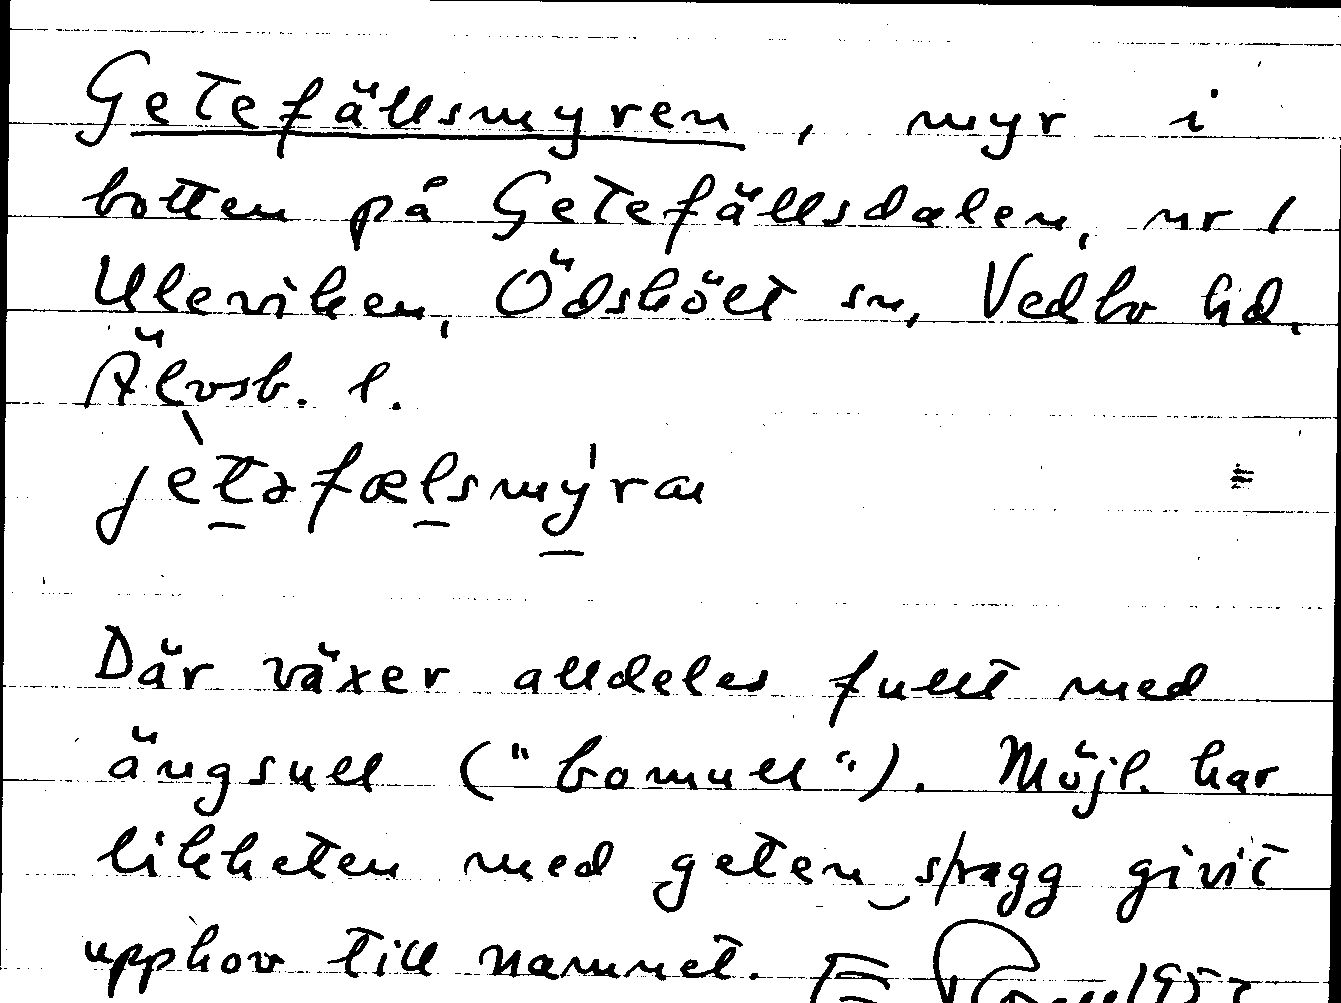 Getefällsmyren, myr i
botten på Getefällsdalen, nr 1
Uleviken, Ödskölt sn, Vedbo hd,
Älvsb. l.
jètəfælsmýran
Där växer alldeles fullt med
ängsull ("bomull"). Möjl. har
likheten med geten_s ragg givit
upphov till namnet.